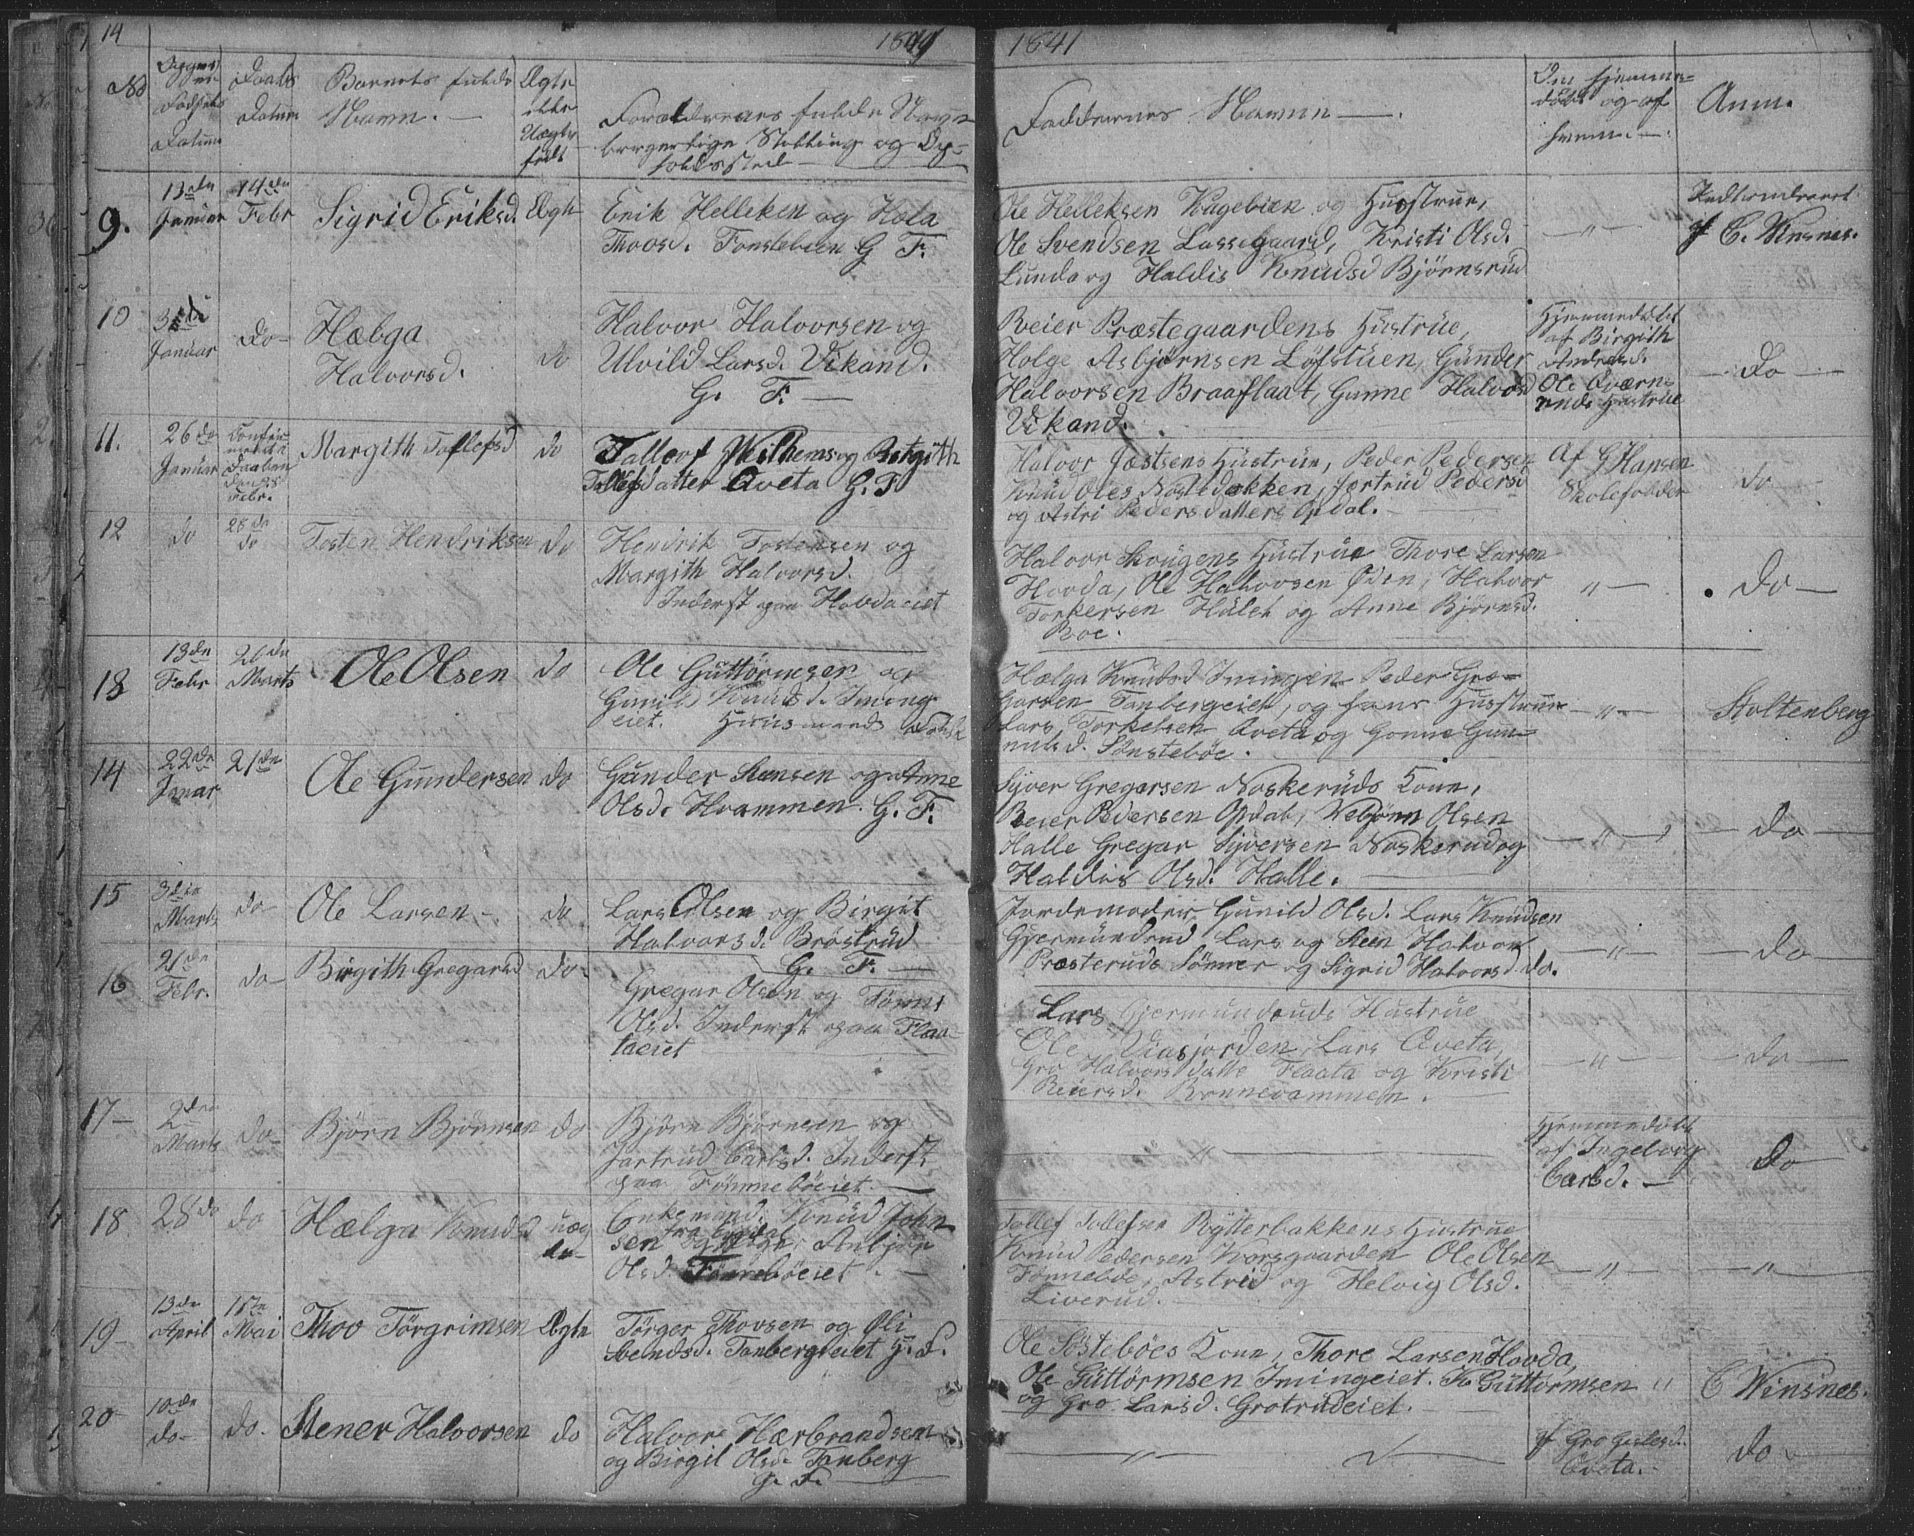 14
1841
1841
No
Daabs
Datum
Barnets fulde
Navn.
Ægte
eller
Uægte
født
Forældrenes fulde Navn
borgerlige Stilling og Op-
holdssted
Faddernes Navne
Om hjemme-
døbt og af
hvem.
Anm.
9.
13de
Januar
14de
Febr
Sigrid Eriksd.
Ægte
Erik Helleksen og
Thoosd. G F.
Ole Helleksen og Hustrue,
Ole Svendsen Lassegaard, Kristi Olsd.
Lunda og Haldis Knudsd Bjørnsrud
— " —
C. Winsnes.
10
31de
Januar
do
Hælga
Halvorsd.
do
Halvor Halvorsen og
Ulvild Larsd. Vikand.
G. F.
Reier Præstegaardens Hustrue,
Holge Asbjørnsen Løfstuen, Gunder
Halvorsen Braaflaat, Gunne Halvorsd
Vikand.
Hjemmedøbt
af Birgith
Andersd.
Ole Qværn
Hustrue
do
11.
26de
Januar
Febr.
Margith Tollefsd
do
Tollof Wilhems og Birgith
Tollefsdatter Aveta G. F
Halvor Jøstsens Hustrue, Peder Pedersen
Knud Oles Jortrud Pedersd
og Astri Pedersdatter Opdal.
Af G Hansen
Skolefolder
do
12
do
28de
do
Tosten Hendriksen
do
Hendrik Tostensen og
Margith Halvorsd.
Inderst paa Hovdaeiet
Halvor Skougens Hustrue Thore Larsen
Hovda, Ole Halvorsen Øden, Halvor
Torkersen og Anne Bjørnsd.
Roe.
"
do
13
13de
Febr
26de
Marts
Ole Olsen
do
Ole Guttormsen og
Gunild Knudsd. Iming-
eiet. Huusmands
Hælga Knudsd Imingen Peder Gre-
Tonbergeiet, og hans Husstrue
Lars Torkelsen Aveta og Gonne Gun-
nulsd. Sønstebøe.
"
Stoltenberg
14
22de
Janar
21de
Ole Gundersen
do
Gunder Stensen og Anne
Olsd. Hvammen. G. F.
Syver Gregarsen Noskeruds Kone,
Reier Pedersen Opdal, Vebjønn Olsen
Halle Gregar Syversen Noskerud og
Haldis Olsd. Halle.
"
do
15
3die
Marts
do
Ole Larsen
do
Lars Olsen og Birgit
Halvorsd. Brøstrud
G. F.
Jordemoder Gunild Olsd. Lars Knudsen
Gjermundrud, Lars og Steen Halvor
Præsteruds Sønner og Sigrid Halvorsd. do.
"
do
16
21de
Febr.
do
Birgith Gregarsd
do
Gregar Olsen og
Olsd. Inderst paa Flaa-
taeiet
Lars Gjermundruds Hustrue
Ole Lars Aveta,
Gro Halvorsdatte Flaata og Kristi
Reiersd. Rennevammen.
"
do
17
2den
Marts
do
Bjørn Bjørnsen
do
Bjørn Bjørnsen og
Jortrud Carlsd. Inderst
paa Fønnebøeiet.
"
Hjemmedøbt
af Ingeborg
Carlsd.
do
18
28de
do
Hælga Knudsd
uæg
do
Enkemand. Knud John
sen og Pige Anbjør
Olsd. Fønnebøeiet
Tollef Tollefsen Rytterbakkens Hustrue
Knud Pedersen Korsgaarden Ole Olsen
Fønnebøe, Astrid og Helvig Olsd.
Liverud.
"
"
19
13de
April
Mai
Thov Torgrimsen
Ægte
Torger Thovsen og Oli
Svendsd. Tonbergeiet G. F.
Ole Søstebøes Kone, Thore Larsen Hovda,
Ole Guttormsen Imingeiet. Guttormsen
og Gro Larsd. Grotrudeiet.
"
C Winsnes.
20
10de
do
do.
Stener Halvorsen
do
Halvor Hærbrandsen
og Birgit Olsd. Tonberg
G. F.
"
af Gro
Aveta.
do